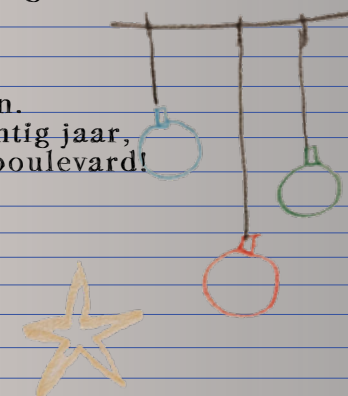 n.
ntig jaar,
boulevard!